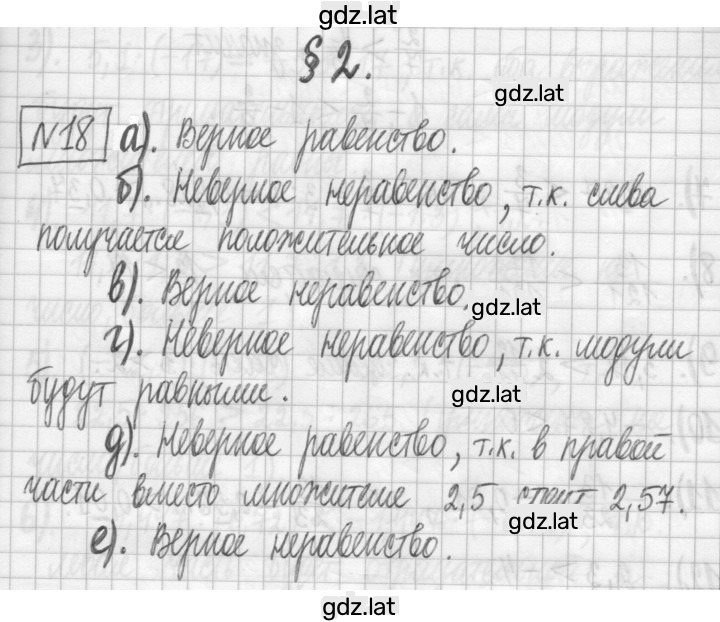 gdz.lat
§ 2.
gdz.lat
N18 а). Верное равенство.
б). Неверное неравенство, т.к. слева
получается положительное число.
в). Верное неравенство.
gdz.lat
г). Неверное неравенство, т.к. модули
будут равными.
gdz.lat
д). Неверное равенство, т.к. в правой
части вместо множителя 2,5 стоит 2,57.
gdz.lat
е). Верное неравенство.
gdz.lat